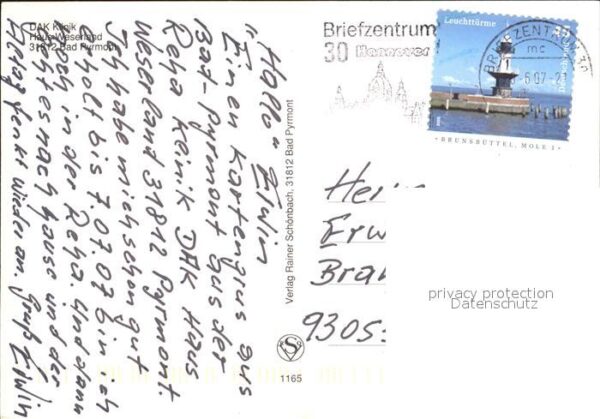 DAK Klinik
Haus Weserland
31812 Bad Pyrmont
Hallo Erwin
Einen Kartengruß aus
Bad-Pyrmont aus der
Reha Kenik DAK Haus
Weserland 31812 Pyrmont.
Ich habe mich schon gut
erholt bis 7.07.07 bin ich
noch in der Reha. Und dann
gehtes nach hause und der
Alltag fenkt wieder an. Gruß Erwin
Verlag Rainer Schönbach, 31812 Bad Pyrmont
1165
Briefzentrum
30 Hannover
Leuchttürme
45
Deutschland
BRUNSBÜTTEL, MOLE 1
BRIEFZENTRUM 30
mc
6.07-21
Herr
Erw
Bra
9305
privacy protection
Datenschutz